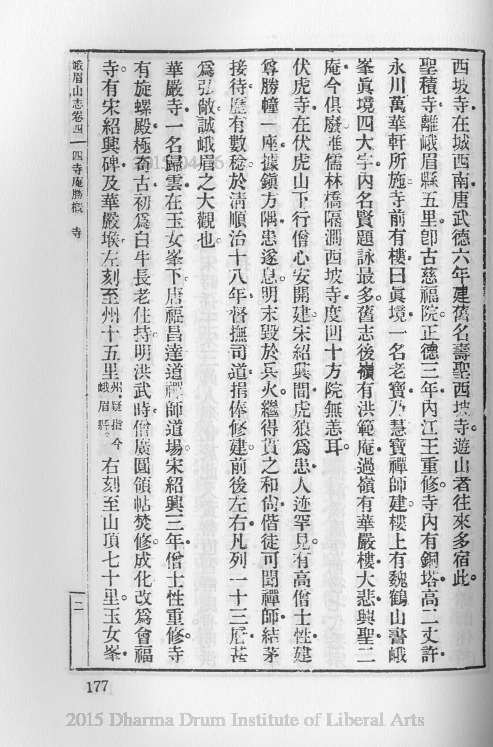 西坡寺在城西南唐武德六年建舊名壽聖西坡寺。遊山者往來多宿此。
聖積寺離峨眉縣五里。卽古慈福院。正德三年內江王重修寺內有銅塔高二丈許
永川萬華軒所施寺前有樓曰眞境一名老寶乃慧寶禪師建樓上有魏鶴山書峨
峯眞境四大字內名賢題詠最多。舊志後嶺有洪範庵過嶺有華嚴樓大悲興聖二
庵今俱廢惟儒林橋隔澗西坡寺度四十方院無恙耳。
伏虎寺在伏虎山下行僧心安開建宋紹興間虎狼爲患人迹罕見有高僧士性建
尊勝幢一座據鎭方隅患遂息明末毀於兵火。繼得貫之和尙偕徒可聞禪師結茅
接待歷有數稔於淸順治十八年督撫司道捐俸修建前後左右凡列一十三層甚
爲弘敞誠峨眉之大觀也
華嚴寺一名歸雲在玉女峯下唐福昌達道禪師道場宋紹興三年僧士性重修。寺
有旋螺殿極奇古初爲白牛長老住持明洪武時僧廣圓領帖焚修成化改爲會福
寺。有宋紹興碑及華嚴堠左刻至州十五里州疑指今峨眉縣。右刻至山頂七十里玉女峯
峨眉山志卷四 四寺庵勝概 寺
二
177
2015/04/16
2015 Dharma Drum Institute of Liberal Arts